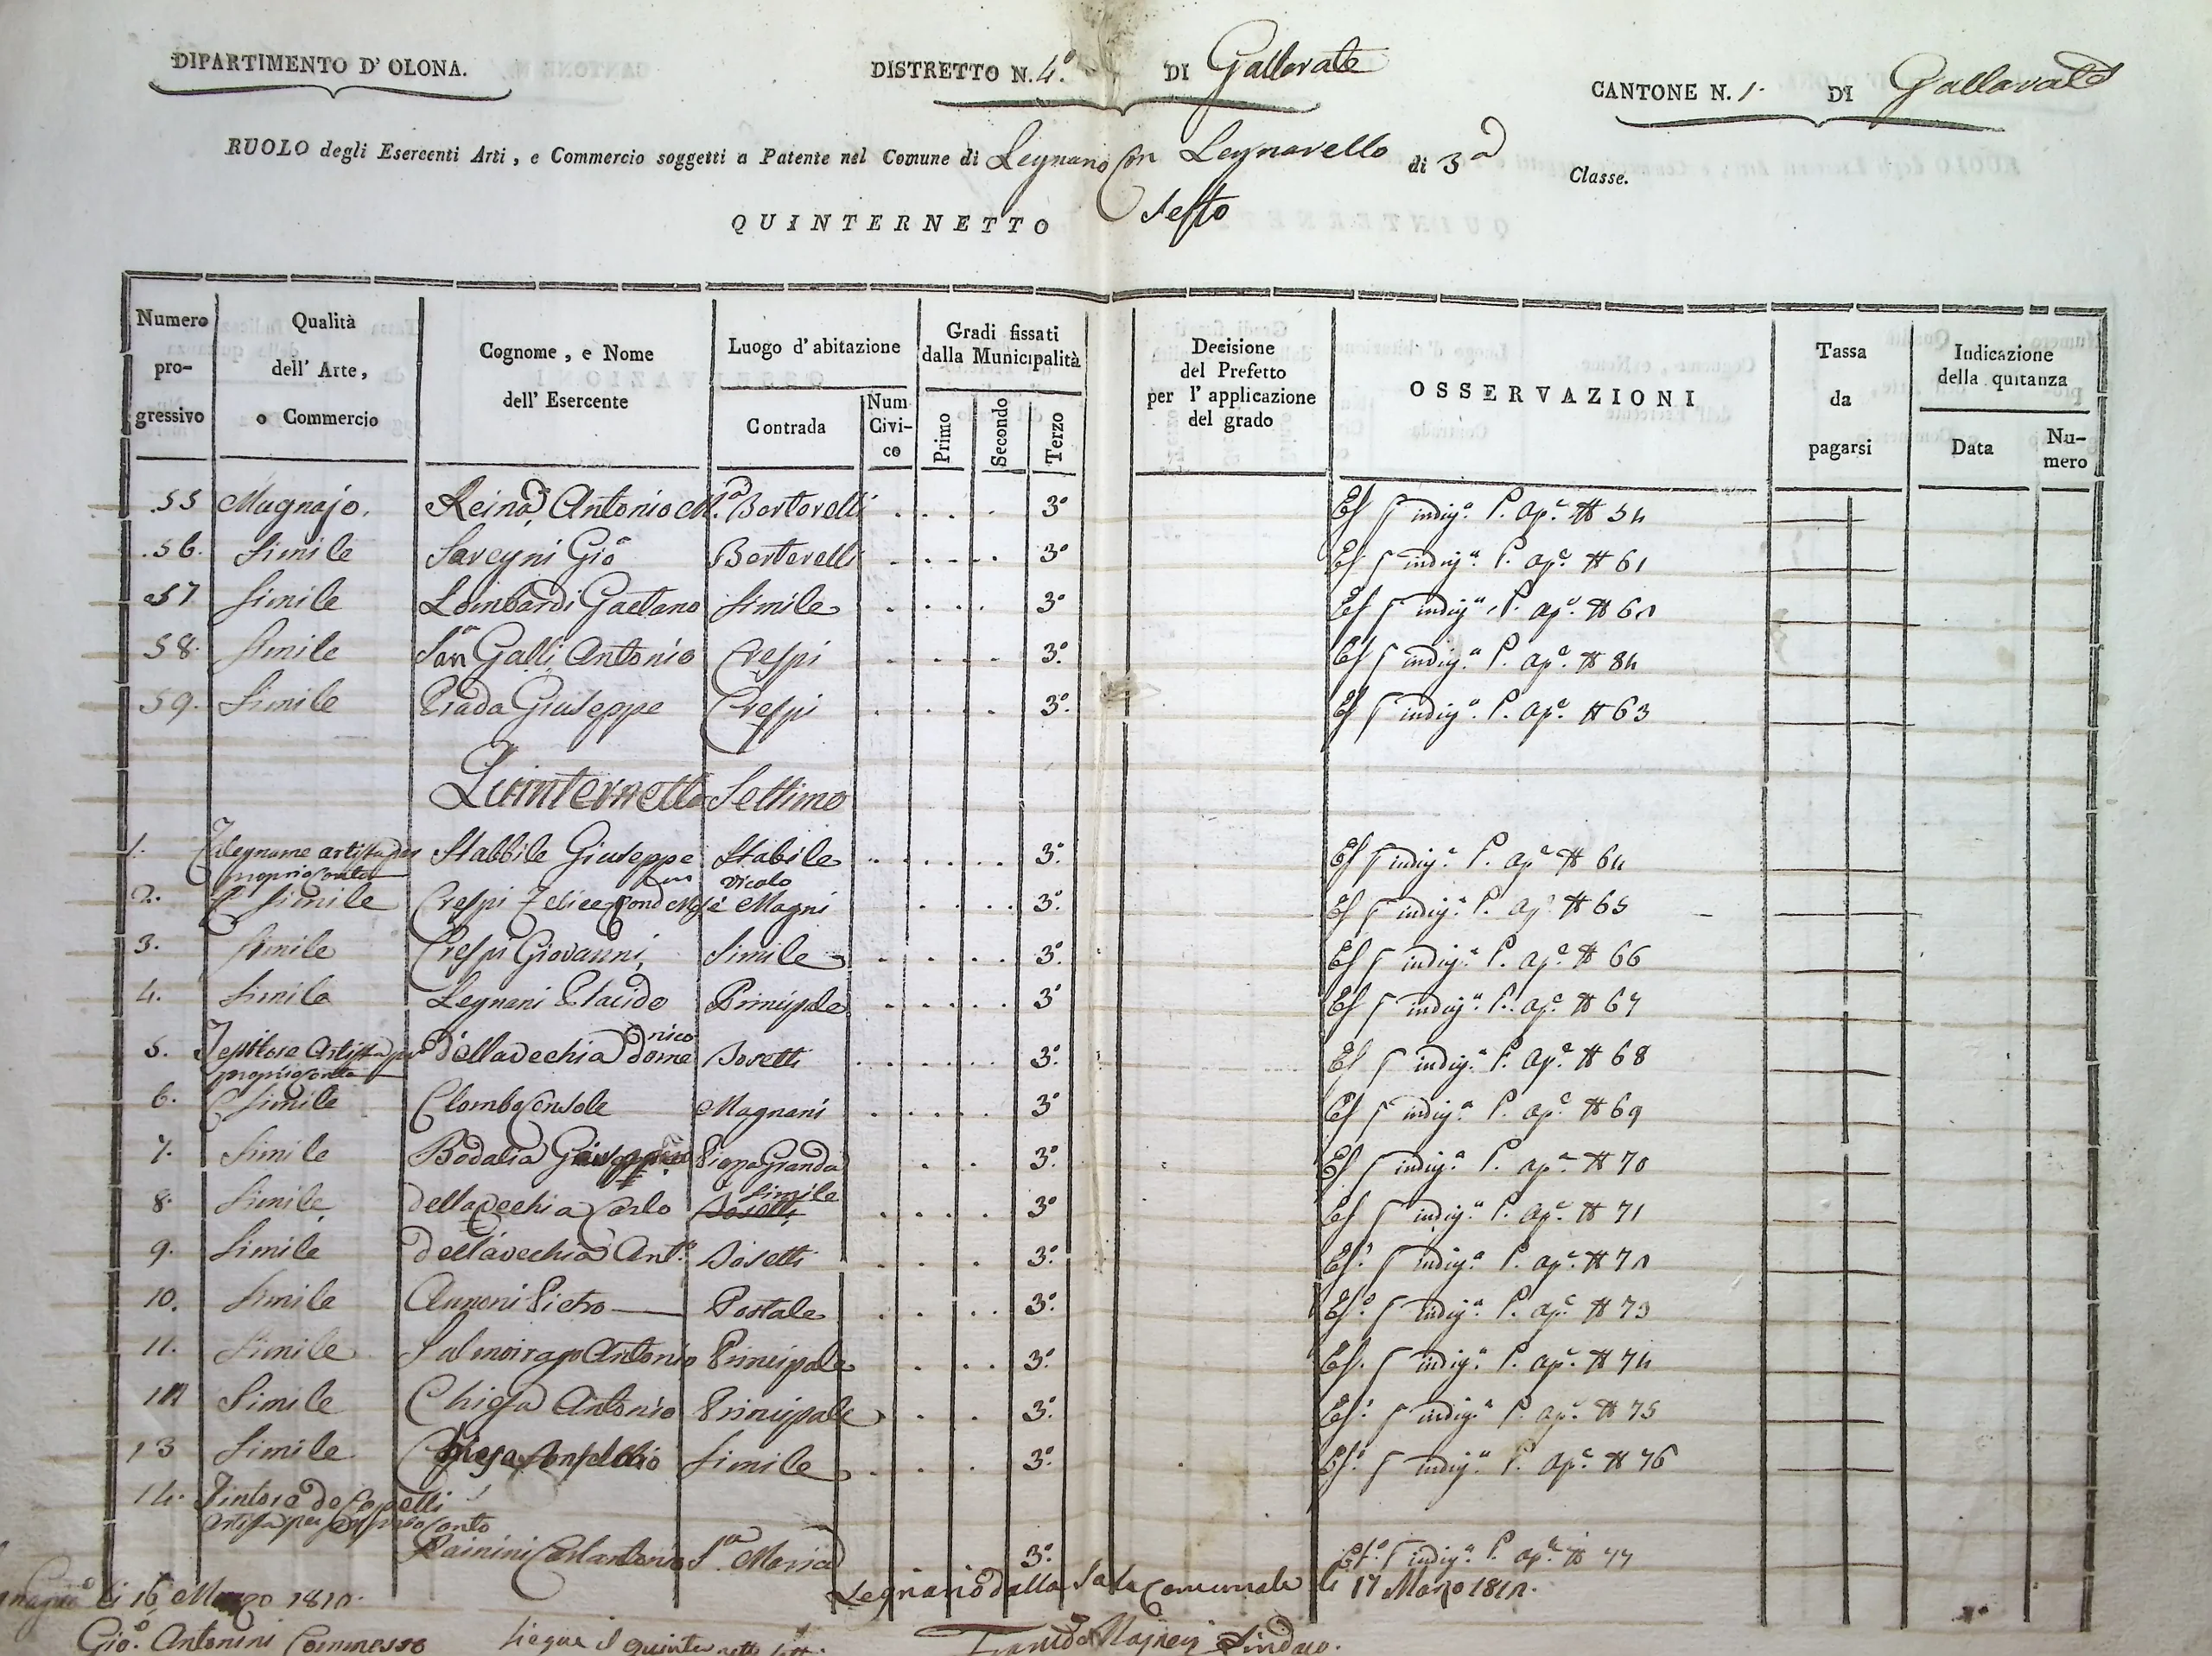 DIPARTIMENTO D' OLONA. DISTRETTO N. 4.° DI Gallarate CANTONE N. 1. DI Gallarate
RUOLO degli Esercenti Arti, e Commercio soggetti a Patente nel Comune di Legnano con Legnarello di 3a Classe.
QUINTERNETTO Sesto
Numero progressivo Qualità dell' Arte, o Commercio Cognome, e Nome dell' Esercente Luogo d' abitazione Contrada Num Civico Gradi fissati dalla Municipalità Primo Secondo Terzo Decisione del Prefetto per l' applicazione del grado OSSERVAZIONI Tassa da pagarsi Indicazione della quitanza Data Numero
55 Magnajo. Reina Antonio M.a 3° indig.a P. ap.e # 54
56. Simile Gio 3° indig.a P. ap.e # 61
57 Simile Lombardi Gaetano Simile 3° indig.a P. ap.e # 62
58. Simile San Galli Antonio Crespi 3.° indig.a P. ap.e # 84
59. Simile Prada Giuseppe Crespi 3.° indig.a P. ap.e # 63
Quinternetto Settimo
1. Falegname artista per proprio conto Stabbile Giuseppe Stabile 3.° indig.a P. ap.e # 64
2. Simile Crespi Felice vicolo Magni 3.° indig.a P. ap.e # 65
3. Simile Crespi Giovanni Simile 3.° indig.a P. ap.e # 66
4. Simile Legnani Placido Principale 3° indig.a P. ap.e # 67
5. Tessitore Artista per proprio conto Dellavechia Domenico 3.° indig.a P. ap.e # 68
6. Simile Magnani 3° indig.a P. ap.e # 69
7. Simile Giuseppe Piopa Granda 3.° indig.a P. ap.e # 70
8. Simile Dellavechia Carlo Simile 3° indig.a P. ap.e # 71
9. Simile Dellavechia Ant.° 3.° indig.a P. ap.e # 72
10. Simile Annoni Pietro Postale 3.° indig.a P. ap.e # 73
11. Simile Salmoirago Antonio Principale 3.° indig.a P. ap.e # 74
12 Simile Chiesa Antonio Principale 3.° indig.a P. ap.e # 75
13 Simile Chiesa Simile 3.° indig.a P. ap.e # 76
14. Tintore da Capelli
Artista per proprio conto
Rainini Carlantonio S.ta Maria 3.° indig.a P. ap.e # 77
li 16 Marzo 1812. Legnano dalla Sala Comunale li 17 Marzo 1812.
Gio. Antonini Commesso Siegue il quinternetto Sindaco.